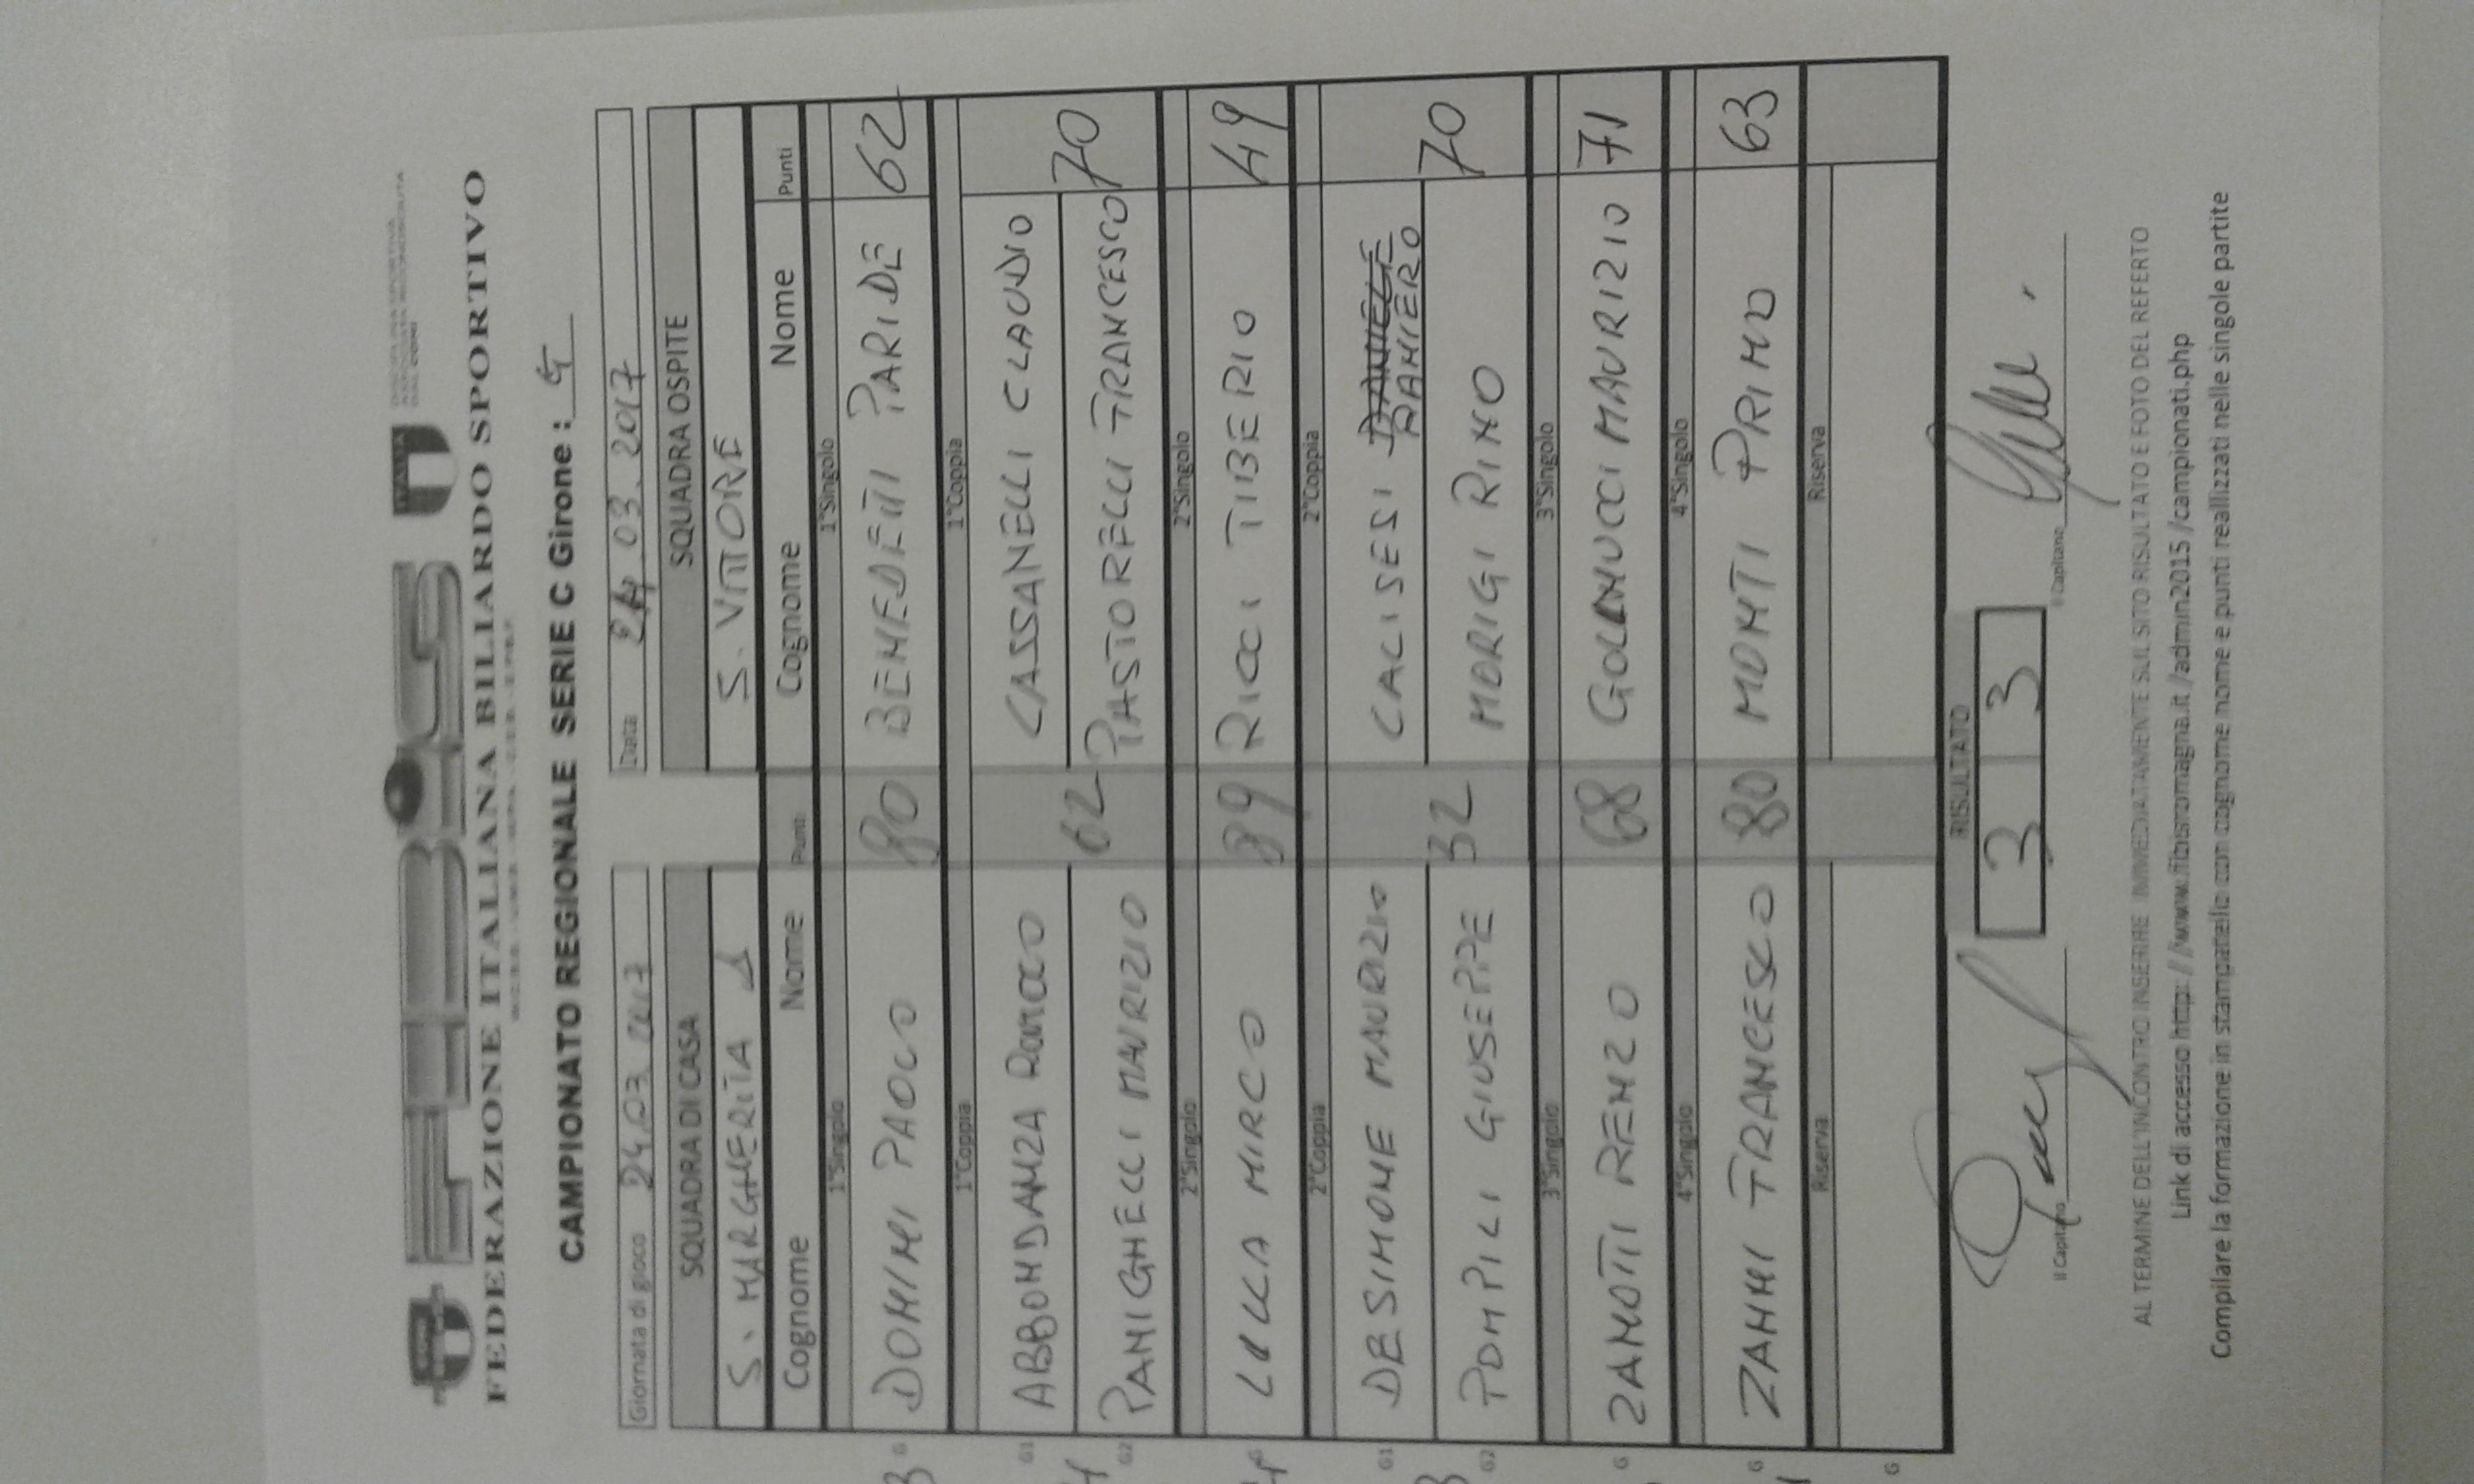 FIBiS
FEDERAZIONE ITALIANA BILIARDO SPORTIVO
CAMPIONATO REGIONALE SERIE C Girone : G
Giornata di gioco 24.03.2017 Data 24.03.2017
SQUADRA DI CASA SQUADRA OSPITE
S. MARGHERITA S. VITTORE
Cognome Nome Punti Cognome Nome Punti
1°Singolo 1°Singolo
G DONINI PAOLO 80 BENEDETTI PARIDE 62
1°Coppia 1°Coppia
G1 ABBONDANZA ROCCO CASSANELLI CLAUDIO
G2 PANIGHELLI MAURIZIO 62 PASTORELLI FRANCESCO 70
2°Singolo 2°Singolo
G LUCCA MIRCO 89 RICCI TIBERIO 49
2°Coppia 2°Coppia
G1 DE SIMONE MAURIZIO CALISESI DANIELE RANIERO
G2 POMPILI GIUSEPPE 32 MORIGI RINO 70
3°Singolo 3°Singolo
G ZANOTTI RENZO 68 GOLINUCCI MAURIZIO 71
4°Singolo 4°Singolo
G ZANNI FRANCESCO 80 MONTI PRIMO 63
Riserva Riserva
G
RISULTATO
3 3
Il Capitano Il Capitano
AL TERMINE DELL'INCONTRO INSERIRE IMMEDIATAMENTE SUL SITO RISULTATO E FOTO DEL REFERTO
Link di accesso http://www.fibisromagna.it /admin2015 /campionati.php
Compilare la formazione in stampatello con cognome nome e punti reallizzati nelle singole partite